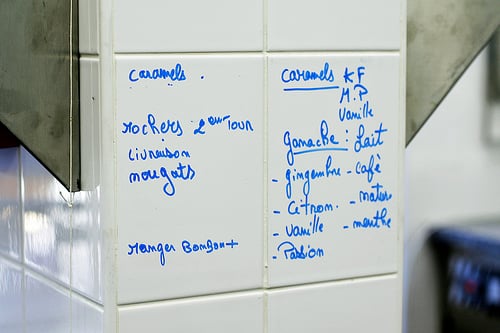 caramels .
rochers 2eme Tour
Livraison
nougats
ranger Bonbont
caramels KF
M.P
Vanille
ganache : Lait
- gingembre - café
- Citron. - nature
- Vanille - menthe
- Passion